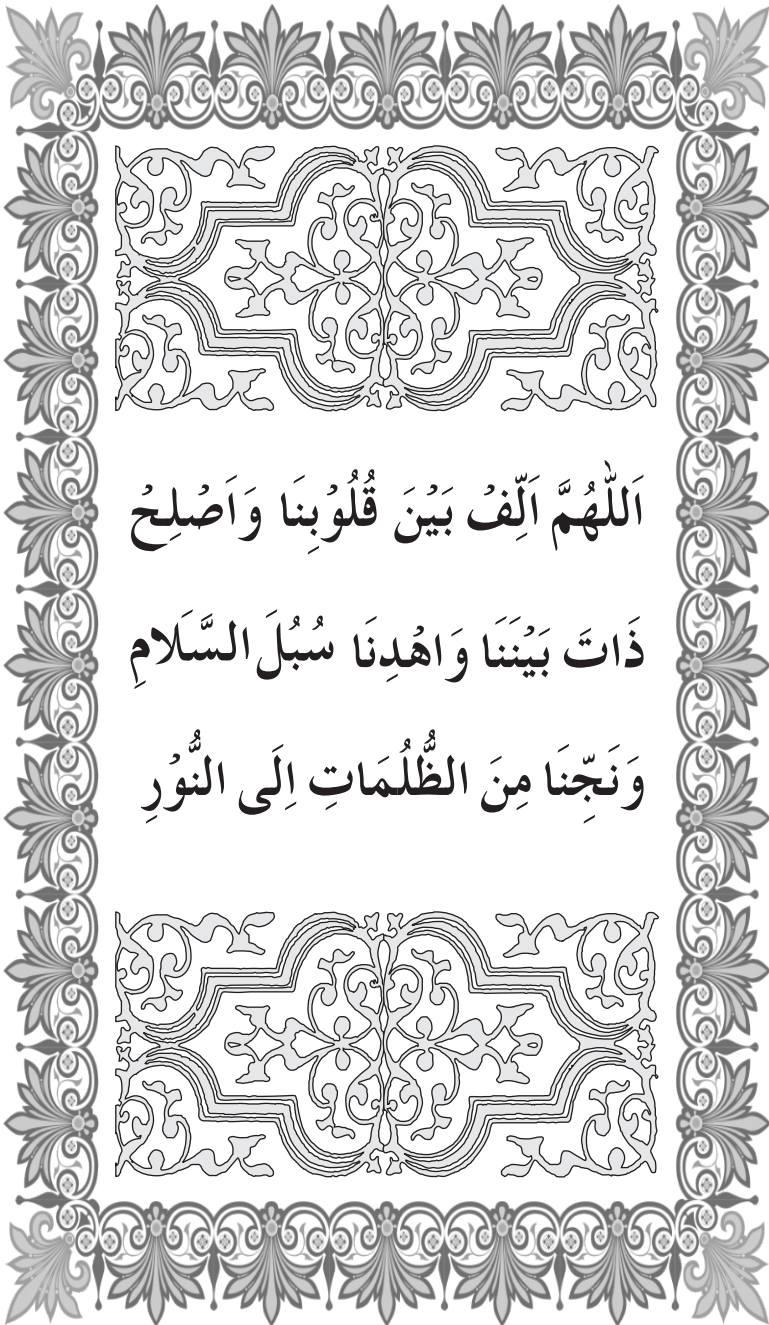 اَللّٰهُمَّ اَلِّفْ بَيْنَ قُلُوْبِنَا وَاَصْلِحْ
ذَاتَ بَيْنَنَا وَاهْدِنَا سُبُلَ السَّلَامِ
وَنَجِّنَا مِنَ الظُّلُمَاتِ اِلَى النُّوْرِ